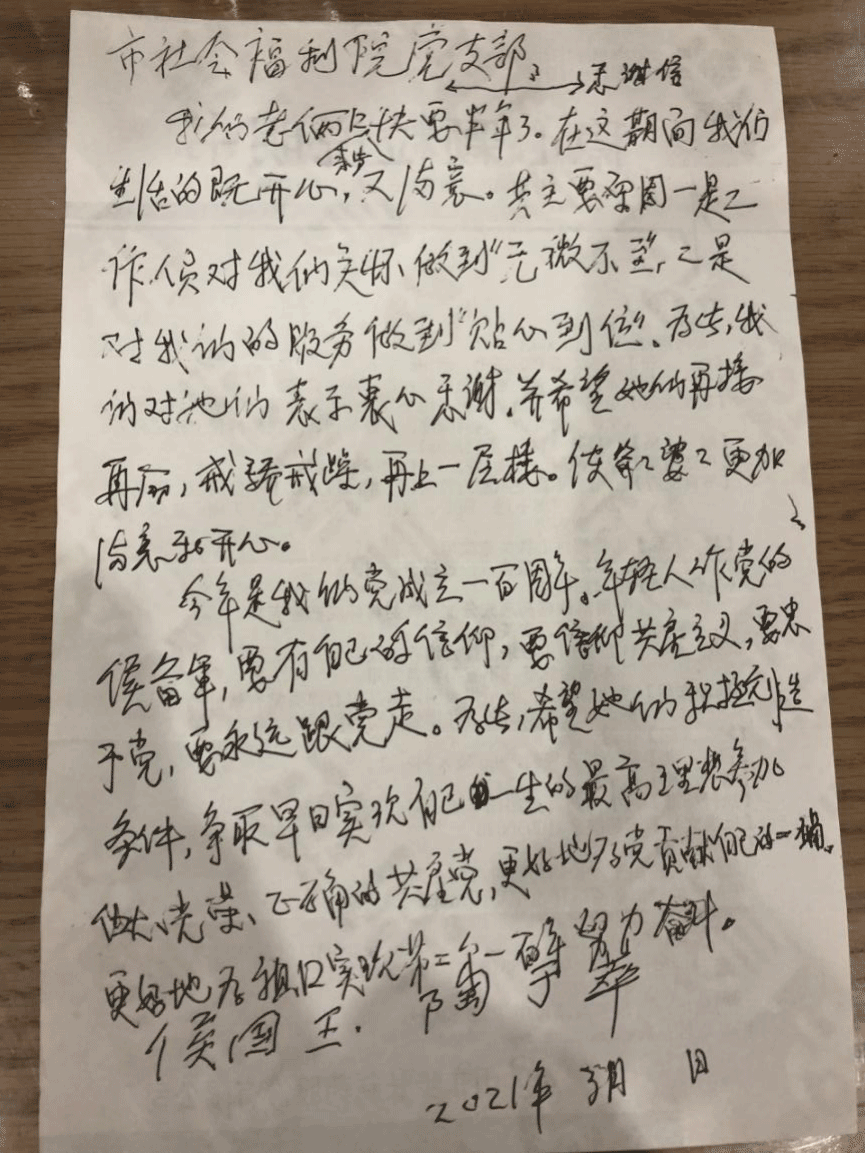 市社会福利院党支部:
感谢信
我们老俩口快要半年了。在这期间我们
生活的既开心,又满意。其主要原因一是工
作人员对我们关怀做到“无微不至”,二是
对我们的服务做到“贴心到位”。为此,我
们对她们表示衷心感谢。并希望她们再接
再厉,戒骄戒躁,再上一层楼。使爷々婆々更加
满意和开心。
今年是我们党成立一百周年。年轻人作党的
候备军,要有自己的信仰,要信仰共产主义,要忠
于党,要永远跟党走。为此,希望她们积极创造
条件,争取早日实现自己一生的最高理想参加
伟大、光荣、正确的共产党,更好地为党贡献自己的一切。
更好地为祖国实现第二个一百年努力奋斗。
侯国玉.
2021年 月 日